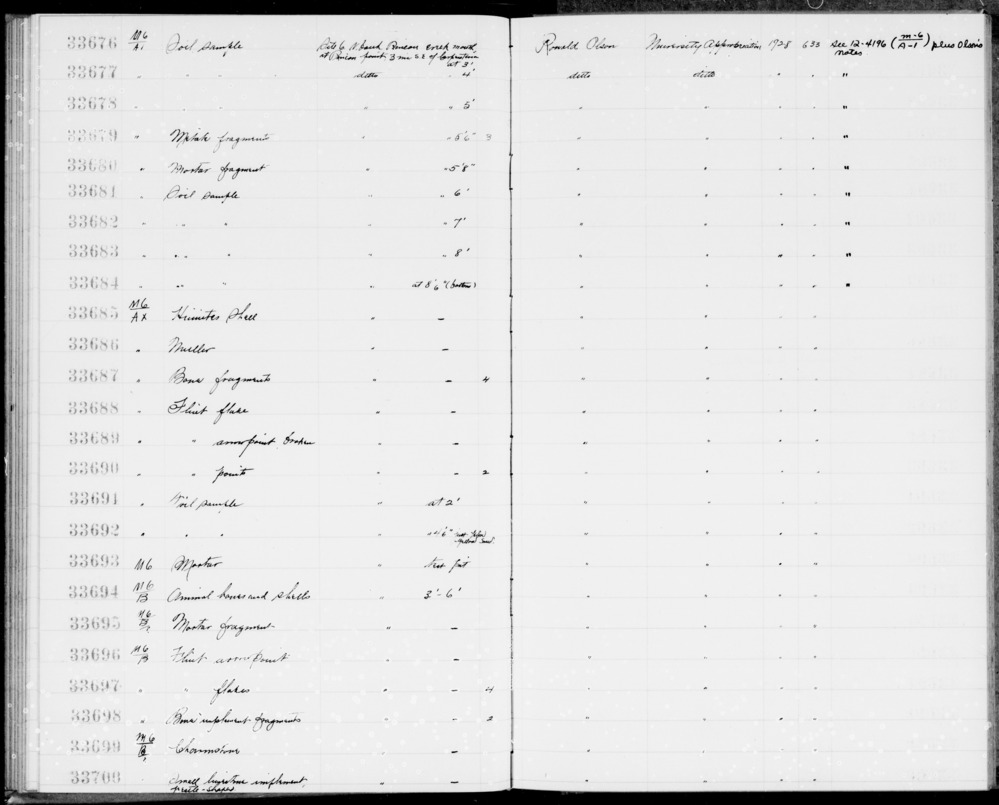 33676 M6/A1 Soil sample Site 6 N. bank Rincon creek mouth, at Rincon point 3 mi S E of Carpinteria at 3' Ronald Olson University Appropriation 1928 633 see 12-4196 (M-6/A-1) plus Olson's notes
33677 " " " ditto " 4' ditto ditto " " "
33678 " " " " " 5' " " " " "
33679 " Metate fragments " " 5'6" 3 " " " " "
33680 " Mortar fragment " " 5'8" " " " " "
33681 " Soil sample " " 6' " " " " "
33682 " " " " " 7' " " " " "
33683 " " " " " 8' " " " " "
33684 " " " " at 8'6" (bottom) " " " " "
33685 M6/AX Hinnites shell " – " " " "
33686 " Muller " – " " " "
33687 " Bone fragments " – 4 " " " "
33688 " Flint flake " – " " " "
33689 " " arrowpoint, broken " – " " " "
33690 " " points " – 2 " " " "
33691 " Soil sample " at 2' " " " "
33692 " " " " " 4'6" " " " "
33693 M6 Mortar " test pit " " " "
33694 M6/B Animal bones and shells " 3'-6' " " " "
33695 M6/B Mortar fragment " – " " " "
33696 M6/B Flint arrowpoint " – " " " "
33697 " " flakes " – 4 " " " "
33698 " Bone implement fragments " – 2 " " " "
33699 M6/B Charmstone " – " " " "
33700 Small implement, pestle-shaped " – " " " "